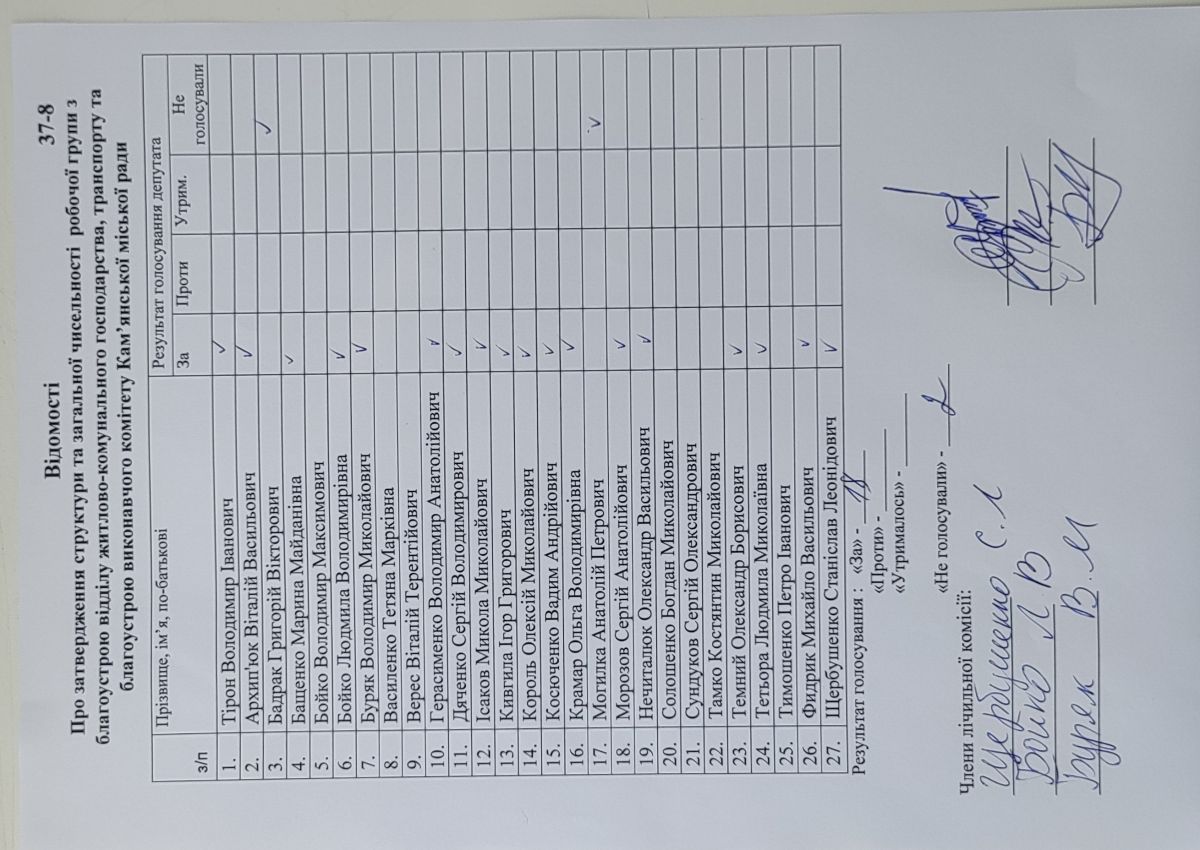 Відомості 37-8
Про затвердження структури та загальної чисельності робочої групи з
благоустрою відділу житлово-комунального господарства, транспорту та
благоустрою виконавчого комітету Кам’янської міської ради
з/п Прізвище, ім’я, по-батькові Результат голосування депутата
За Проти Утрим. Не голосували
1. Тірон Володимир Іванович ✓
2. Архип'юк Віталій Васильович ✓
3. Бадрак Григорій Вікторович ✓
4. Бащенко Марина Майданівна ✓
5. Бойко Володимир Максимович
6. Бойко Людмила Володимирівна ✓
7. Буряк Володимир Миколайович ✓
8. Василенко Тетяна Марківна
9. Верес Віталій Терентійович
10. Герасименко Володимир Анатолійович ✓
11. Дяченко Сергій Володимирович ✓
12. Ісаков Микола Миколайович ✓
13. Кивгила Ігор Григорович ✓
14. Король Олексій Миколайович ✓
15. Косюченко Вадим Андрійович ✓
16. Крамар Ольга Володимирівна ✓
17. Могилка Анатолій Петрович ✓
18. Морозов Сергій Анатолійович ✓
19. Нечиталюк Олександр Васильович ✓
20. Солошенко Богдан Миколайович
21. Сундуков Сергій Олександрович
22. Тамко Костянтин Миколайович
23. Темний Олександр Борисович ✓
24. Тетьора Людмила Миколаївна ✓
25. Тимошенко Петро Іванович
26. Фидрик Михайло Васильович ✓
27. Щербушенко Станіслав Леонідович ✓
Результат голосування : «За» - 18
«Проти» - ______
«Утрималось» - ______
«Не голосували» - 2
Члени лічильної комісії:
Щербушенко С.Л
Бойко Л.В
Буряк В.М